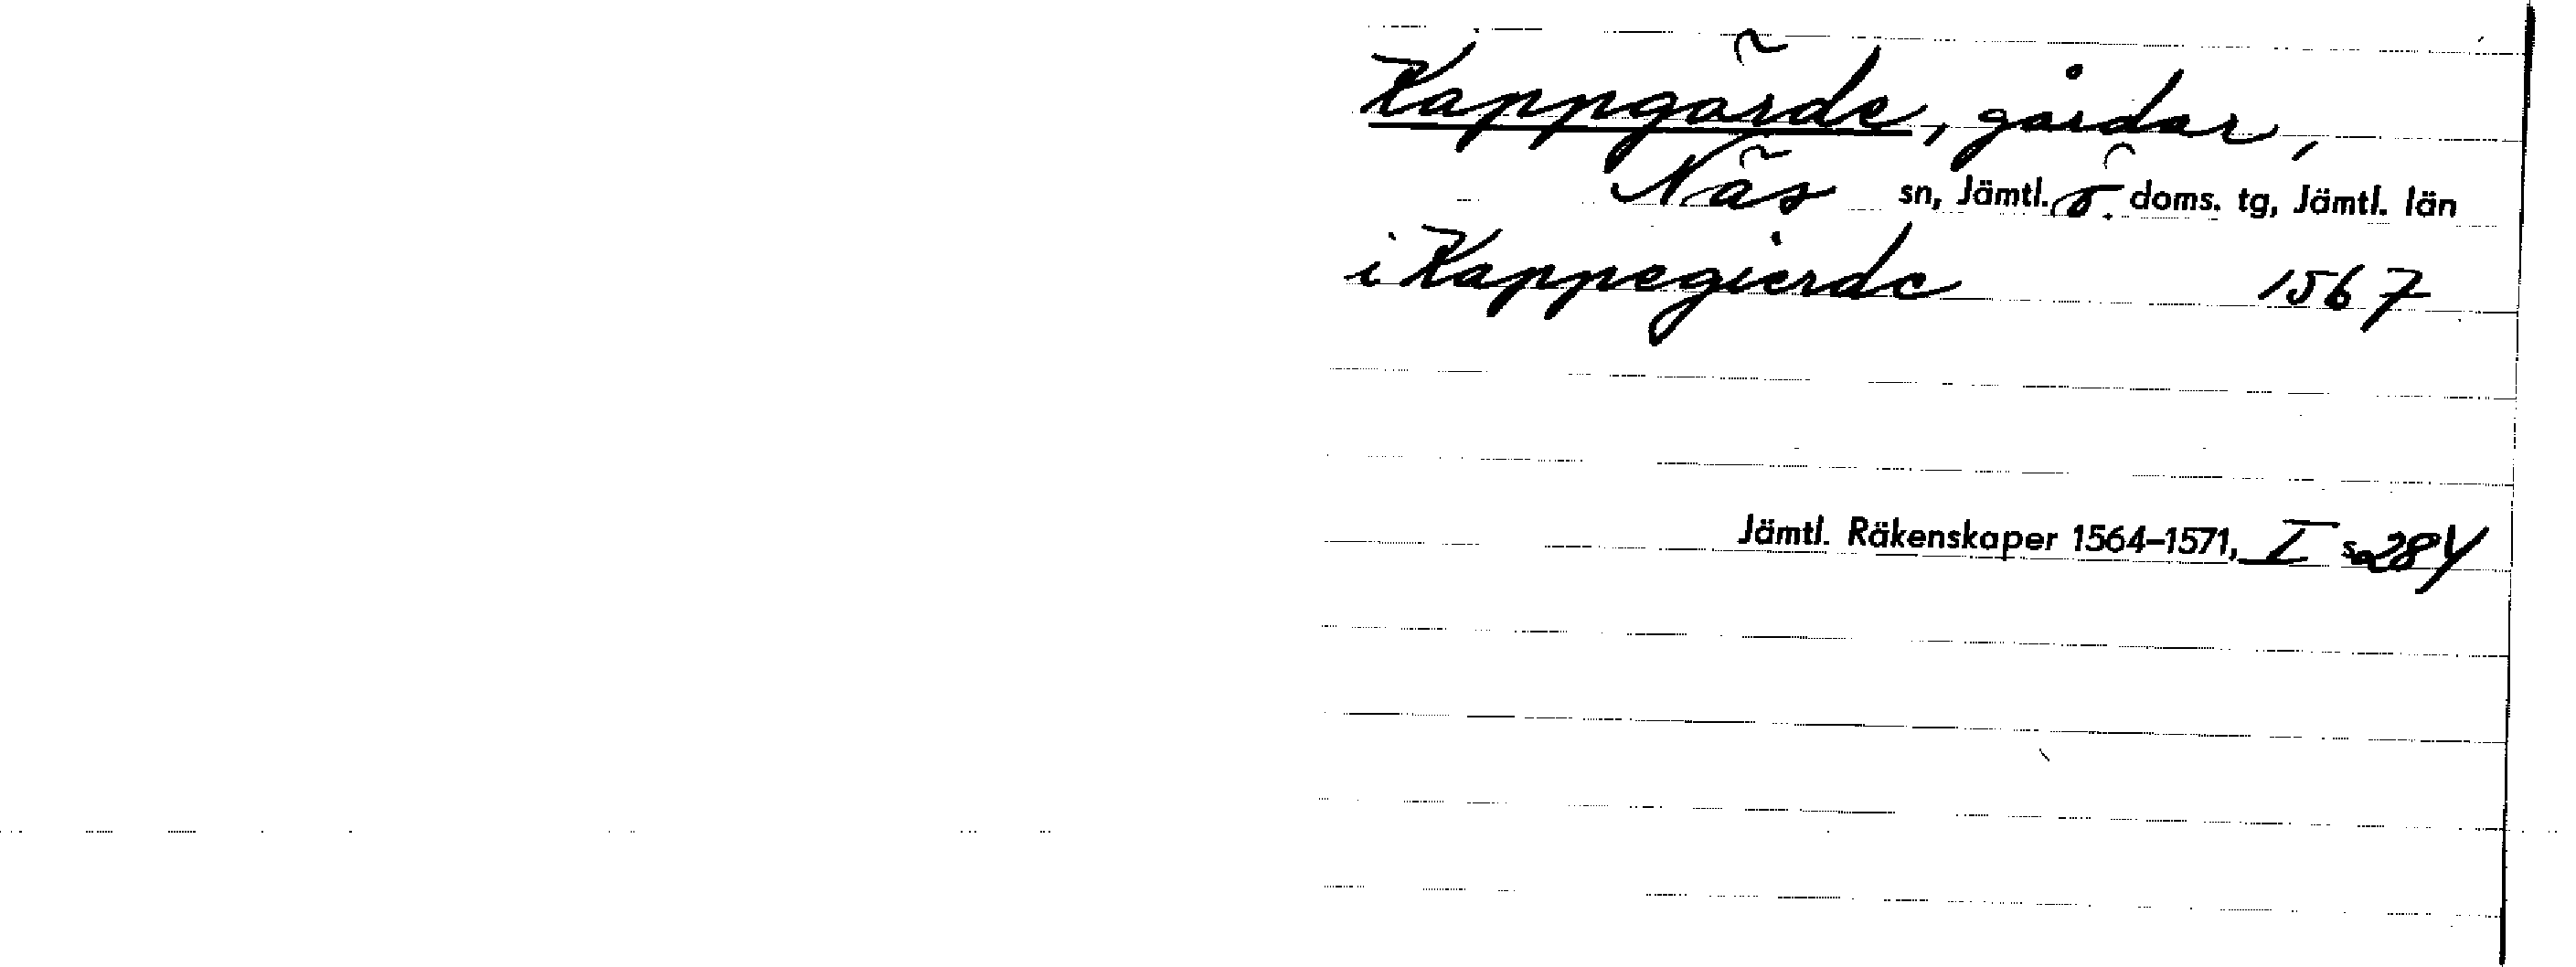 Kappgärde, gårdar,
Näs sn, Jämtl. ö. doms. tg, Jämtl. län
i Kappegierde 1567
Jämtl. Räkenskaper 1564–1571, I s. 284